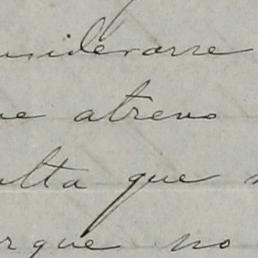 nsiderarse
ue atrevo
ulta que
rque no